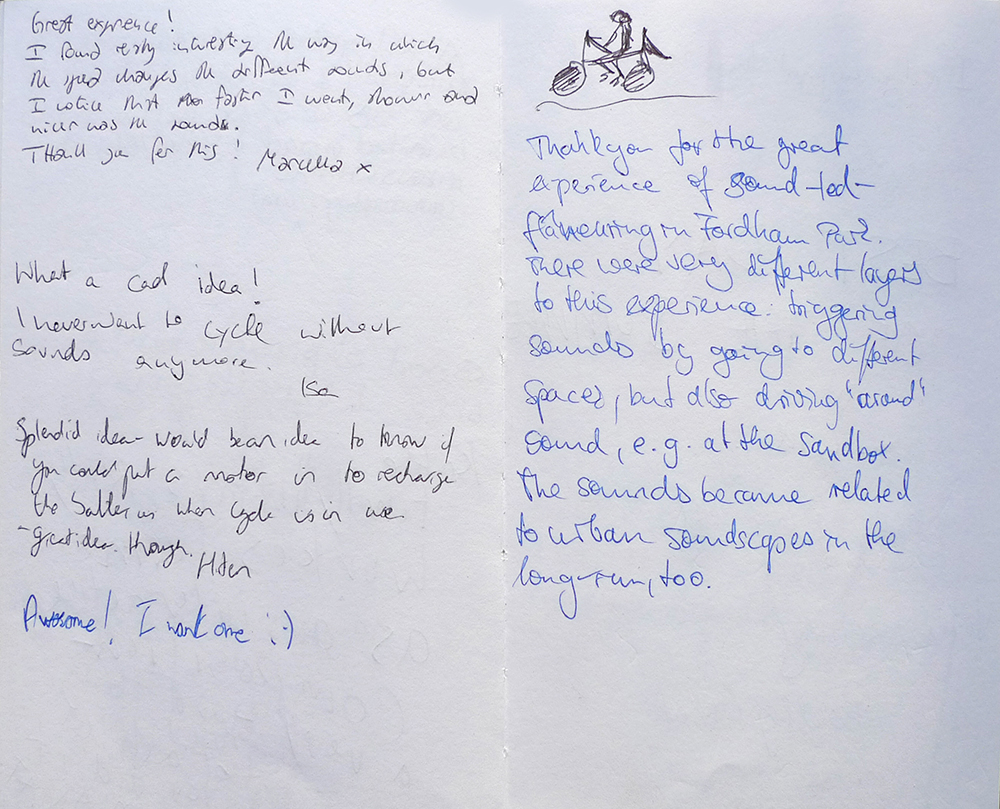 Great exprience!
I found really interesting the way in which
the speed changes the different sounds, but
I notice that the faster I went, and
nicer was the sounds.
THank you for this!
Marcella x
What a cool idea!
I never want to cycle without
sounds anymore.
Isa
Splendid idea - would be an idea to know if
you could put a motor in to recharge
the batteries when cycle is in use
- great idea though.
Awesome! I want one :-)
Thank you for the great
experience of sound-led-
flâneuring in Fordham Park.
There were very different layers
to this experience: triggering
sounds by going to different
spaces, but also driving "around"
sound, e.g. at the sandbox.
The sounds became related
to urban soundscapes in the
long-run, too.